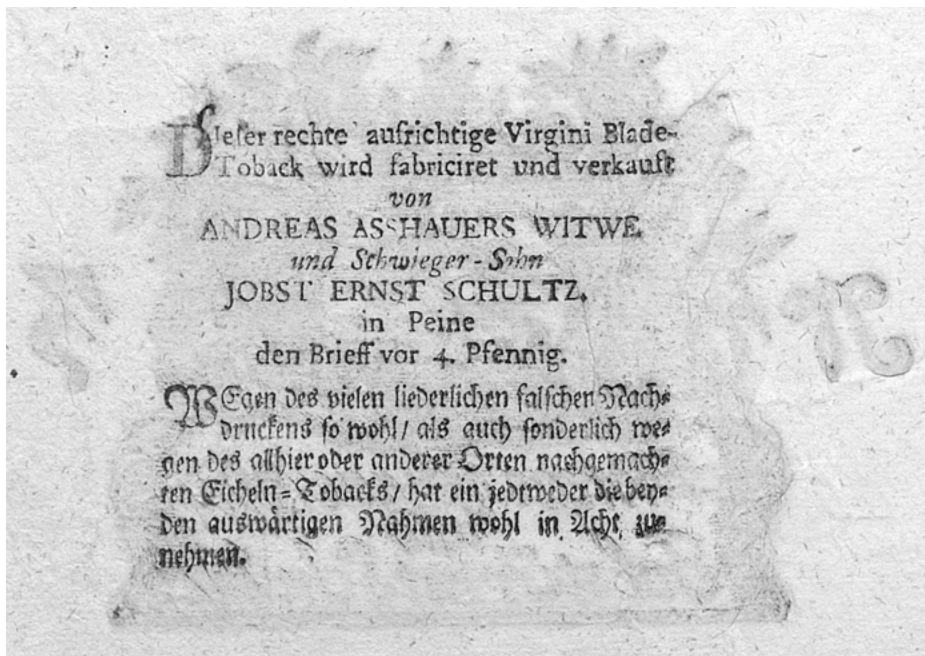 Dieser rechte aufrichtige Virgini Blade-
Toback wird fabriciret und verkauft
von
ANDREAS ASSHAUERS WITWE
und Schwieger-Sohn
JOBST ERNST SCHULTZ.
in Peine
den Brieff vor 4. Pfennig.
WEgen des vielen liederlichen falschen Nach-
druckens so wohl / als auch sonderlich we-
gen des allhier oder anderer Orten nachgemach-
ten Eicheln-Tobacks / hat ein jedtweder die bey-
den auswärtigen Nahmen wohl in Acht zu-
nehmen.